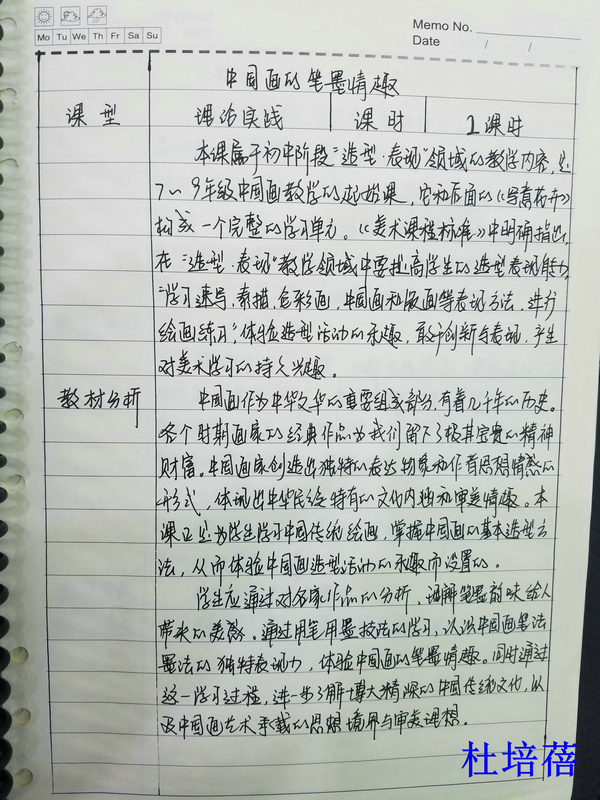 Memo No.
Mo Tu We Th Fr Sa Su
Date / /
中国画的笔墨情趣
课型 理论实践 课时 1课时
本课属于初中阶段"造型·表现"领域的教学内容,是
7~9年级中国画教学的起始课,它和后面的《写意花卉》
构成一个完整的学习单元。《美术课程标准》中明确指出,
在"造型·表现"教学领域中要提高学生的造型表现能力,
"学习速写、素描、色彩画、中国画和版画等表现方法,进行
绘画练习",体验造型活动的乐趣,敢于创新与表现,产生
对美术学习的持久兴趣。
教材分析 中国画作为中华文华的重要组成部分,有着几千年的历史。
各个时期画家的经典作品为我们留下了极其宝贵的精神
财富。中国画家创造出独特的表达物象和作者思想情感的
形式,体现出中华民族特有的文化内独和审美情趣。本
课正是为学生学习中国传统绘画,掌握中国画的基本造型方
法,从而体验中国画造型活动的乐趣而设置的。
学生应通过对名家作品的分析,理解笔墨韵味给人
带来的美感。通过用笔用墨技法的学习,认识中国画笔法
墨法的独特表现力,体验中国画的笔墨情趣。同时通过
这一学习过程,进一步了解博大精深的中国传统文化,以
及中国画艺术承载的思想境界与审美理想。
杜培蓓